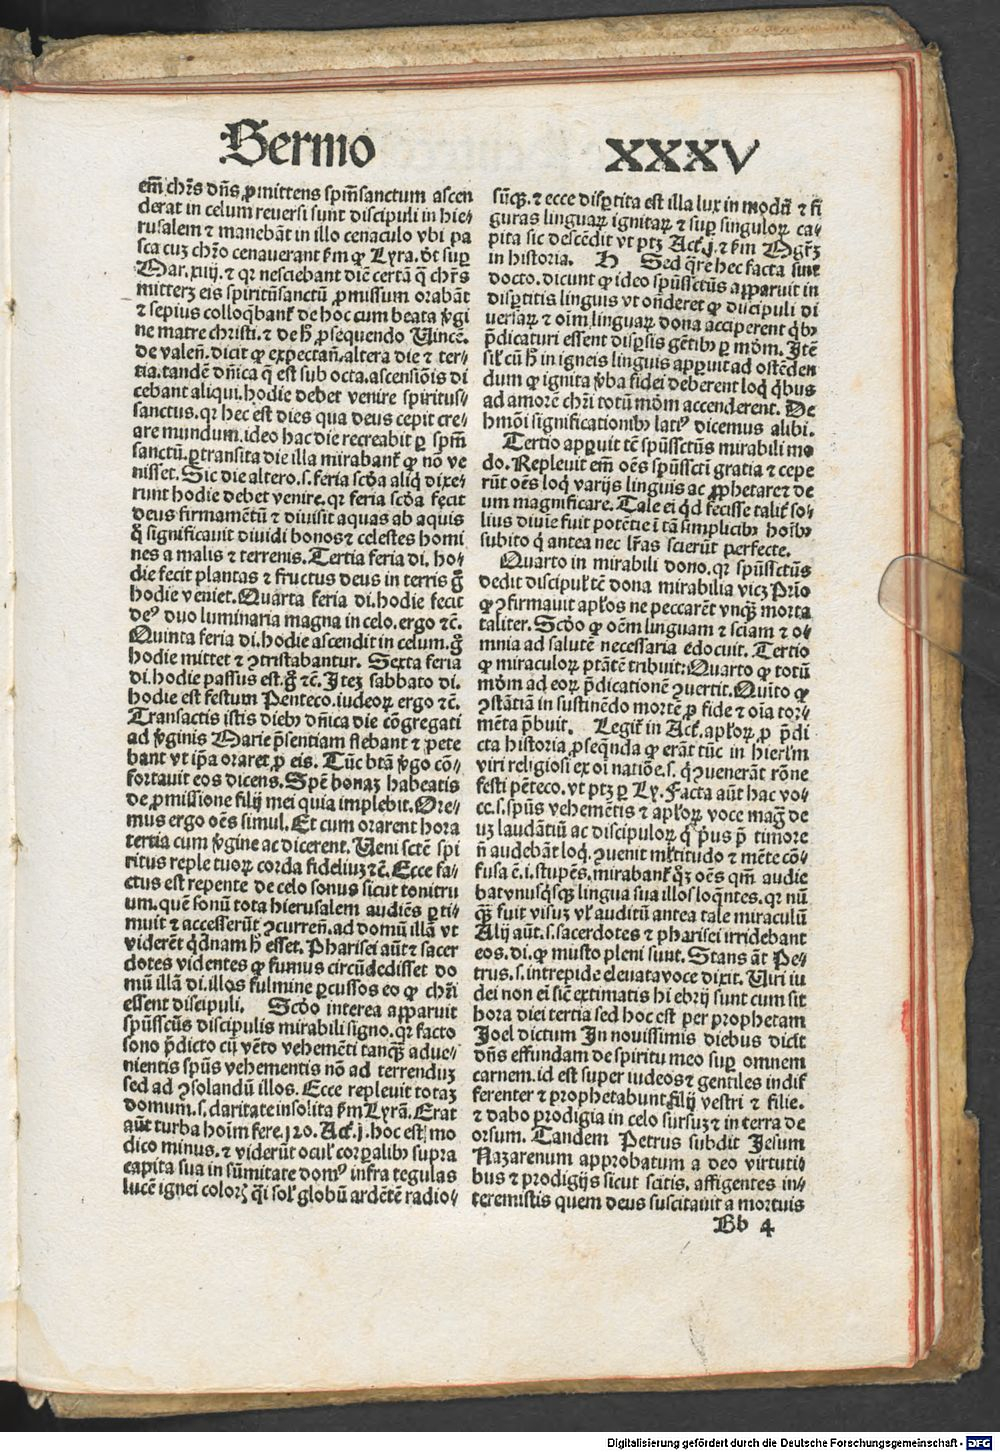 Sermo XXXV
em̄ chr̄s dn̄s ꝓmittens spm̄sanctum ascen
derat in celum reuersi sunt discipuli in hie⸗
rusalem ⁊ manebāt in illo cenaculo vbi pa
sca cuꝫ chr̄o cenauerant ẜm ꝙ Lyra. dt̄ suꝑ
Mar. xiiij. ⁊ qꝛ nesciebant diē certā q̄ chr̄s
mitterꝫ eis spiritūsanctū ꝓmissum orabāt
⁊ sepius colloq̄banť de hoc cum beata v̓gi
ne matre christi. ⁊ de h̄ ꝓsequendo Uincē.
de valen̄. dicit ꝙ expectan̄. altera die ⁊ ter⸗
tia. tandē dn̄ica q̄ est sub octa. ascensiōis di
cebant aliqui. hodie debet venire spiritus⸗
sanctus. qꝛ hec est dies qua deus cepit cre⸗
are mundum. ideo hac die recreabit ꝑ spm̄
sanctū. ꝑtransita die illa mirabanť ꝙ nō ve
nisset. Sic die altero. s. feria scd̓a aliq̇ dixe⸗
runt hodie debet venire. qꝛ feria scd̓a fecit
deus firmamētū ⁊ diuisit aquas ab aquis
ꝙ̄ significauit diuidi bonos ⁊ celestes homi
nes a malis ⁊ terrenis. Tertia feria di. ho⸗
die fecit plantas ⁊ fructus deus in terris g̊
hodie veniet. Quarta feria di. hodie fecit
deꝰ duo luminaria magna in celo. ergo ⁊c̄.
Quinta feria di. hodie ascendit in celum. g̊
hodie mittet ⁊ ꝯtristabantur. Sexta feria
di. hodie passus est. g̊ ⁊c̄. Iteꝫ sabbato di.
hodie est festum Penteco. iudeoꝝ ergo ⁊c̄.
Transactis istis diebꝰ dn̄ica die cōgregati
ad v̓ginis Marie p̄sentiam flebant ⁊ pete
bant vt ip̄a oraret ꝓ eis. Tūc btā v̓go cō⸗
fortauit eos dicens. Spē bonaꝫ habeatis
de ꝓmissione filij mei quia implebit. Ore⸗
mus ergo oēs simul. Et cum orarent hora
tertia cum v̓gine ac dicerent. Ueni sctē spi
ritus reple tuoꝝ corda fideliuꝫ ⁊c̄. Ecce fa⸗
ctus est repente de celo sonus sicut tonitru
um. quē sonū tota hierusalem audiēs ꝑti⸗
muit ⁊ accesserūt ꝯcurren̄. ad domū illā vt
viderēt q̇dnam h̄ esset. Pharisei aūt ⁊ sacer
dotes videntes ꝙ fumus circūdedisset do
mū illā di. illos fulmine ꝑcussos eo ꝙ chr̄i
essent discipuli. Scd̓o interea apparuit
spūsscūs discipulis mirabili signo. qꝛ facto
sono p̄dicto cū vēto vehemēti tanq̄ꝫ adue⸗
nientis spūs vehementis nō ad terrenduꝫ
sed ad ꝯsolandū illos. Ecce repleuit totaꝫ
domum. s. claritate insolita ẜm Lyrā. Erat
aūt turba hoīm fere. 120. Act̓. j. hoc est mo
dico minus. ⁊ viderūt ocul̓ corꝑalibꝰ supra
capita sua in sūmitate domꝰ infra tegulas
lucē ignei coloris q̄i sol̓ globū ardētē radio⸗
sūqꝫ. ⁊ ecce disꝑtita est illa lux in modū ⁊ fi
guras linguaꝝ ignitaꝝ ⁊ suꝑ singuloꝝ ca⸗
pita sic descēdit vt ptꝫ Act̓. j. ⁊ ẜm Mgr̄ꝫ
in historia. H Sed q̄re hec facta sint
docto. dicunt ꝙ ideo spūssctūs apparuit in
disꝑtitis linguis vt on̄deret ꝙ discipuli di
uersaꝝ ⁊ oīm linguaꝝ dona acciperent q̇bꝰ
p̄dicaturi essent disꝑsis gētibꝰ ꝑ mōm. Itē
sil̓ cū h̄ in igneis linguis apꝑuit ad ostēden
dum ꝙ ignita v̓ba fidei deberent loq̇ q̇bus
ad amorē chr̄i totū mōm accenderent. De
hmōi significationibꝰ latiꝰ dicemus alibi.
Tertio apꝑuit tē spūssctūs mirabili mo
do. Repleuit em̄ oēs spūsscti gratia ⁊ cepe
rūt oēs loq̇ varijs linguis ac ꝓphetare ⁊ de
um magnificare. Tale ei q̇d fecisse talit̓ so⸗
lius diuīe fuit potētie ī tā simplicibꝰ hoībꝰ
subito q̇ antea nec lr̄as scierūt perfecte.
Quarto in mirabili dono. qꝛ spūssctūs
dedit discipul̓ tē dona mirabilia vicꝫ Prio
ꝙ ꝯfirmauit apl̓os ne peccarēt vnq̄ꝫ morta
taliter. Scd̓o ꝙ oēm linguam ⁊ sciam ⁊ o⸗
mnia ad salutē necessaria edocuit. Tertio
ꝙ miraculoꝝ ptātē tribuit: Quarto ꝙ totū
mōm ad eoꝝ p̄dicationē ꝯuertit. Quīto ꝙ
ꝯstātiā in sustinēdo mortē ꝓ fide ⁊ oīa tor⸗
mēta p̄buit. Legiť in Act̓. apl̓oꝝ. ꝓ p̄di
cta historia ꝓseq̄nda ꝙ erāt tūc in hierl̓m
viri religiosi ex oi natiōe. s. q̇ ꝯuenerāt rōne
festi pēteco. vt ptꝫ ꝑ Ly. Facta aūt hac vo⸗
ce. s. spūs vehemētis ⁊ apl̓oꝝ voce mag̅ de
uꝫ laudātiū ac discipuloꝝ q̇ p̓us p̄ timore
n̄ audebāt loq̇. ꝯuenit ml̓titudo ⁊ mēte cō⸗
fusa ē. i. stupēs. mirabanť q̇ꝫ oēs qm̄ audie
bat vnusq̇sqꝫ lingua sua illos loq̄ntes. qꝛ nū
q̄ꝫ fuit visuꝫ vl̓ auditū antea tale miraculū
Alij aūt. s. sacerdotes ⁊ pharisei irridebant
eos. di. ꝙ musto pleni sunt. Stans āt Pe⸗
trus. s. intrepide eleuata voce dixit. Uiri iu
dei non ei sic̄ extimatis hi ebrij sunt cum sit
hora diei tertia sed hoc est per prophetam
Joel dictum In nouissimis diebus dicit
dn̄s effundam de spiritu meo suꝑ omnem
carnem. id est super iudeos ⁊ gentiles indif
ferenter ⁊ prophetabunt filij vestri ⁊ filie.
⁊ dabo prodigia in celo sursuꝫ ⁊ in terra de
orsum. Tandem Petrus subdit Jesum
Nazarenum approbatum a deo virtuti⸗
bus ⁊ prodigijs sicut scitis. affigentes in⸗
teremistis quem deus suscitauit a mortuis
Bb 4
Digitalisierung gefördert durch die Deutsche Forschungsgemeinschaft - DFG